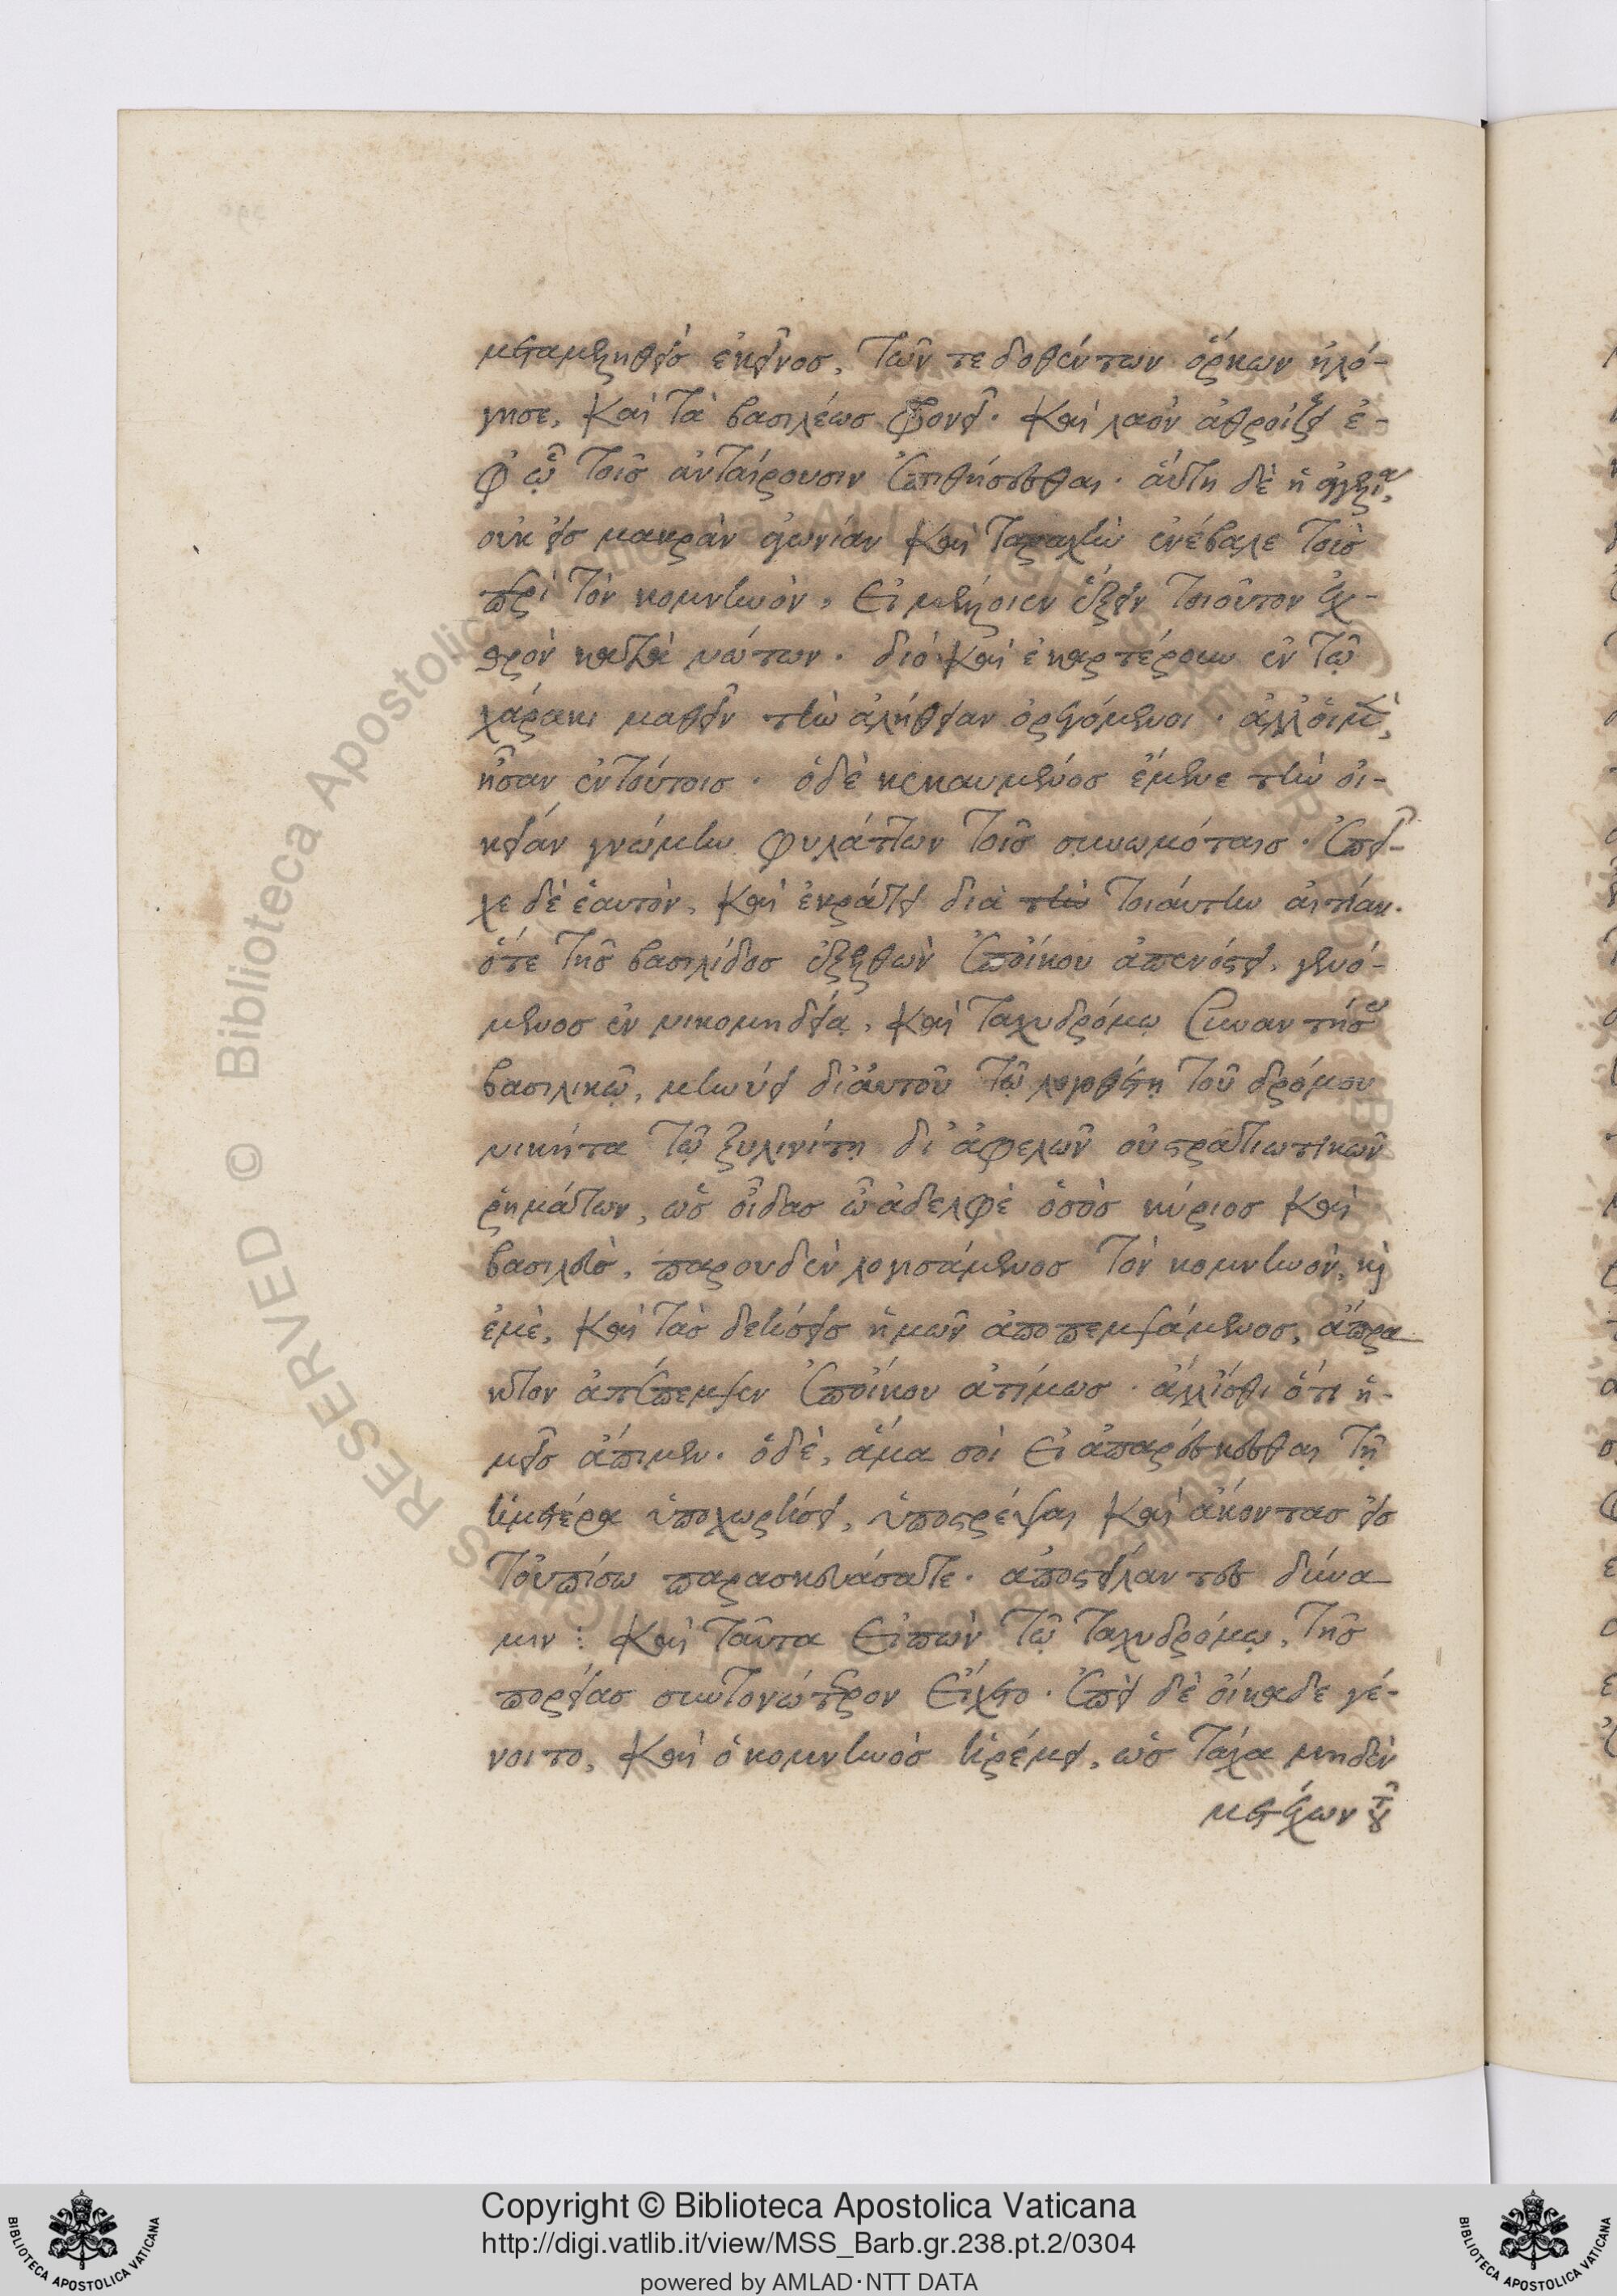 μεταμεληθεὶς ἐκεῖνος, τῶν τε δοθέντων ὅρκων ἠλό-
γησε, καὶ τὰ βασιλέως φρονεῖ. καὶ λαὸν ἀθροίζει ἐ-
φ' ᾧ τοῖς ἀνταίρουσιν ἐπιθήσεσθαι. αὕτη δὲ ἡ ἀγγελία,
οὐκ εἰς μακρὰν ἀγωνίαν καὶ ταραχὴν ἐνέβαλε τοῖς
περὶ τὸν κομνηνὸν, εἰ μέλλοιεν ἕξειν τοιοῦτον ἐχ-
θρὸν κατὰ νώτων. διὸ καὶ ἐκαρτέρουν ἐν τῷ
χάρακι μαθεῖν τὴν ἀλήθειαν ὀρεγόμενοι. ἀλλ' οἱ μὲν,
ἦσαν ἐν τούτοις. ὁ δὲ κεκαυμένος ἔμενε τὴν οἰ-
κείαν γνώμην φυλάττων τοῖς συνωμόταις. ἐπεῖ-
χε δὲ ἑαυτὸν, καὶ ἐκράτει διὰ τὴν τοιαύτην αἰτίαν.
ὅτε τῆς βασιλίδος ἐξελθὼν ἐπ' οἴκου ἀπενόστει, γενό-
μενος ἐν νικομηδείᾳ, καὶ ταχυδρόμῳ συναντήσας
βασιλικῷ, μηνύει δι' αὐτοῦ τῷ λογοθέτῃ τοῦ δρόμου
νικήτα τῷ ξυλινίτῃ δι' ἀφελῶν οὐ στρατιωτικῶν
ῥημάτων, ὡς οἶδας ὦ ἀδελφὲ ὁ σὸς κύριος καὶ
βασιλεὺς, παρ' οὐδὲν λογισάμενος τὸν κομνηνὸν, κὶ
ἐμὲ, καὶ τὰς δεήσεις ἡμῶν ἀποπεμψάμενος, ἄπρα
κτον ἀπέπεμψεν ἐπ' οἴκου ἀτίμως. ἀλλ' ἴσθι ὅτι ἡ-
μεῖς ἄπιμεν. ὁ δὲ, ἅμα σοὶ εἰ ἀπαρέσκεσθαι τῇ
ἡμετέρα ὑποχωρήσει, ὑποστρέψαι καὶ ἄκοντας εἰς
τοὐπίσω παρασκευάσατε. ἀποστείλαντες δύνα
μιν: καὶ ταῦτα εἰπὼν τῷ ταχυδρόμῳ, τῆς
πορείας συντονώτερον εἴχετο. ἐπεὶ δὲ οἴκαδε γέ-
νοιτο, καὶ ὁ κομνηνὸς ἠρέμει, ὡς τάχα μηδὲν
μετέχων τοῦ
RESERVED © Biblioteca Apostolica Vaticana
Copyright © Biblioteca Apostolica Vaticana
http://digi.vatlib.it/view/MSS_Barb.gr.238.pt.2/0304
powered by AMLAD·NTT DATA
BIBLIOTECA APOSTOLICA VATICANA
BIBLIOTECA APOSTOLICA VATICANA